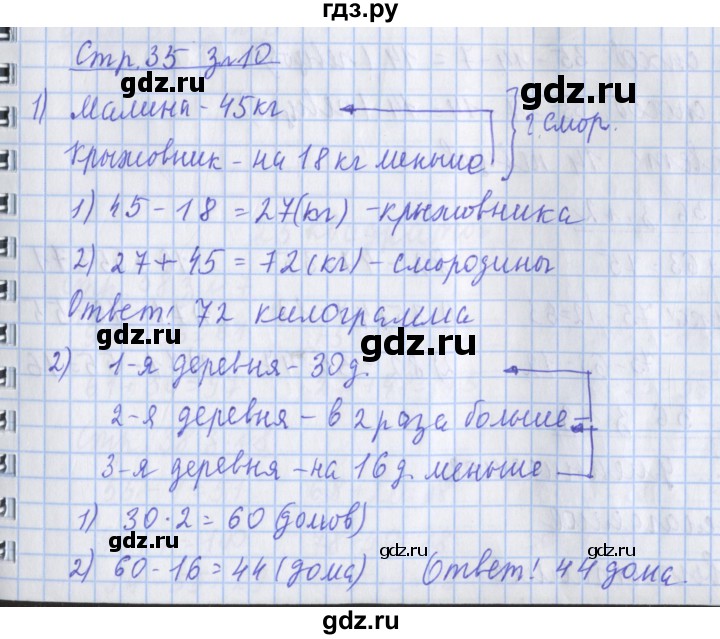 гдз.ру
Стр. 35 з. 10
gdz.ru
gdz.ru
1) Малина - 45кг
? смор.
gdz.ru
Крыжовник - на 18 кг меньше
1) 45 - 18 = 27(кг) - крыжовника
2) 27 + 45 = 72 (кг) - смородины
Ответ: 72 килограмма
gdz.ru
gdz.ru
2) 1-я деревня - 30 д.
2-я деревня - в 2 раза больше
gdz.ru
3-я деревня - на 16 д. меньше
1) 30 · 2 = 60 (домов)
gdz.ru
gdz.ru
gdz.ru
2) 60 - 16 = 44 (дома) Ответ: 44 дома.
gdz.ru